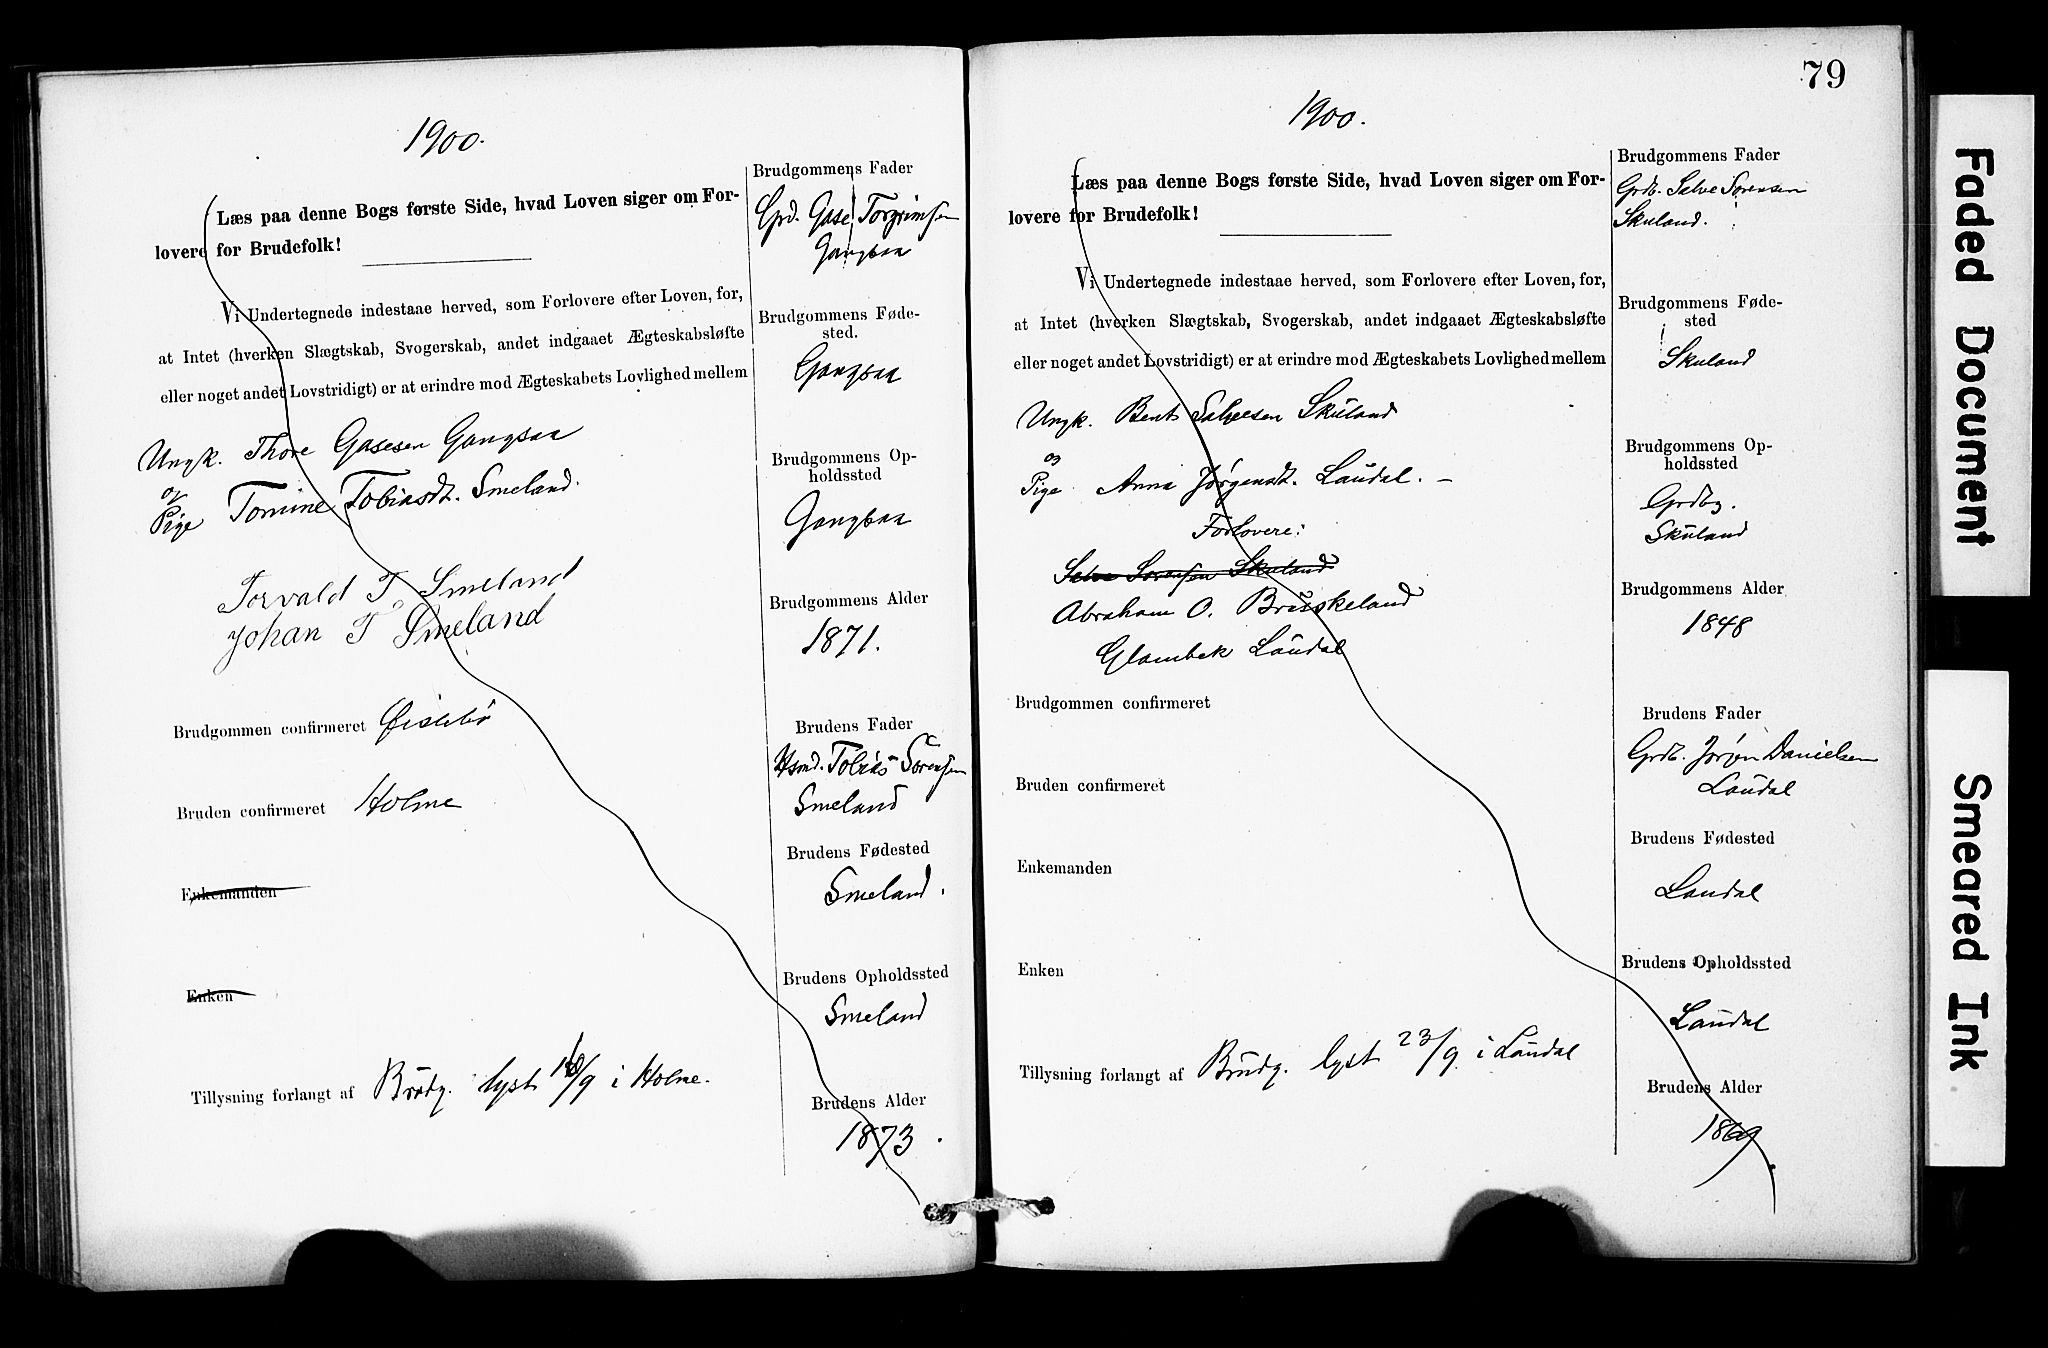 1900.
Læs paa denne Bogs første Side, hvad Loven siger om For-
lovere for Brudefolk!
Vi Undertegnede indestaae herved, som Forlovere efter Loven, for,
at Intet (hverken Slægtskab, Svogerskab, andet indgaaet Ægteskabsløfte
eller noget andet Lovstridigt) er at erindre mod Ægteskabets Lovlighed mellem
Ungk. Thore Gasesen Gangsaa
og
Pige Tomine Tobiasdt. Smeland.
Torvald T Smeland
Johan T Smeland
Brudgommen confirmeret Øislebø
Bruden confirmeret Holme
Enkemanden
Enken
Tillysning forlangt af Brudg. lyst /9 i Holme.
Brudgommens Fader
Grd. Gase Torgrimsen
Gangsaa
Brudgommens Føde-
sted.
Gangsaa
Brudgommens Op-
holdssted
Gangsaa
Brudgommens Alder
1871.
Brudens Fader
Hsmd. Tobias Sørensen
Smeland
Brudens Fødested
Smeland.
Brudens Opholdssted
Smeland
Brudens Alder
1873.
79
1900.
Læs paa denne Bogs første Side, hvad Loven siger om For-
lovere for Brudefolk!
Vi Undertegnede indestaae herved, som Forlovere efter Loven, for,
at Intet (hverken Slægtskab, Svogerskab, andet indgaaet Ægteskabsløfte
eller noget andet Lovstridigt) er at erindre mod Ægteskabets Lovlighed mellem
Ungk. Bent Salvesen Skuland
og
Pige Anna Jørgensdt. Laudal. –
Forlovere:
Salve Sørensen Skuland
Abraham O. Bruskeland
Glambek Laudal
Brudgommen confirmeret
Bruden confirmeret
Enkemanden
Enken
Tillysning forlangt af Brudg. lyst 23/9 i Laudal
Brudgommens Fader
Grdb. Salve Sørensen
Skuland.
Brudgommens Føde-
sted
Skuland
Brudgommens Op-
holdssted
Grdbg.
Skuland
Brudgommens Alder
1848
Brudens Fader
Grdb. Jørgen Danielsen
Laudal
Brudens Fødested
Laudal
Brudens Opholdssted
Laudal
Brudens Alder
1869
Faded Document
Smeared Ink